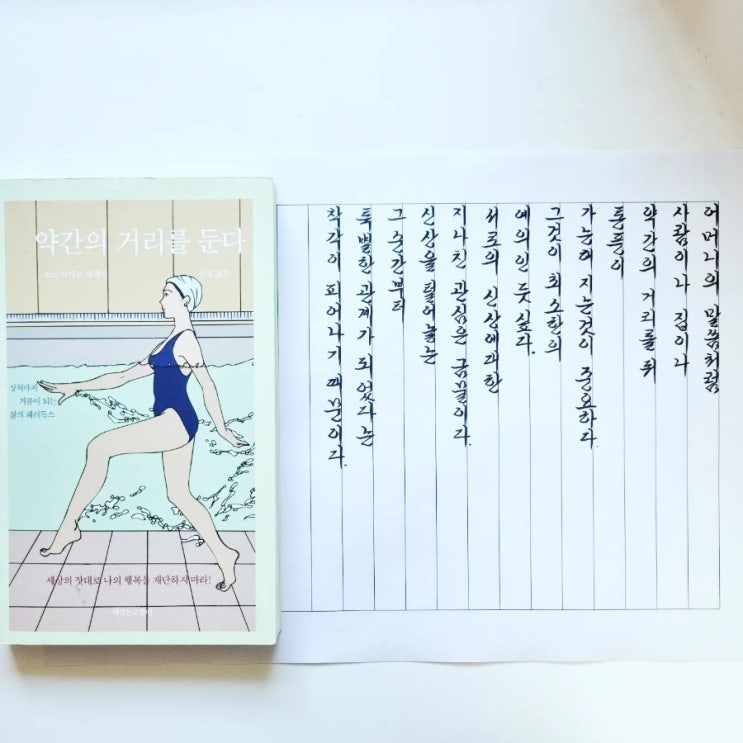 약간의 거리를 둔다
소노 아야코 에세이
김욱 옮김
상처마저
거름이 되는
삶의 패러독스
세상의 잣대로 나의 행복을 재단하지 마라!
어머니의 말씀처럼
사람이나 집이나
약간의 거리를 둬
통풍이
가능해 지는것이 중요하다.
그것이 최소한의
예의인 듯 싶다.
서로의 신상에 대한
지나친 관심은 금물이다.
신상을 털어놓는
그 순간부터
특별한 관계가 되었다는
착각이 피어나기 때문이다.